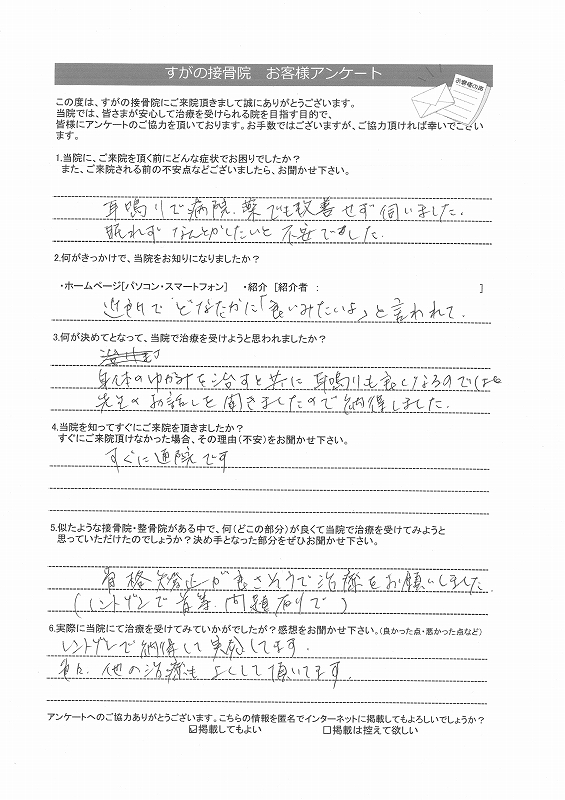 すがの接骨院　お客様アンケート
お客様の声
この度は、すがの接骨院にご来院頂きまして誠にありがとうございます。
当院では、皆さまが安心して治療を受けられる院を目指す目的で、
皆様にアンケートのご協力を頂いております。お手数ではございますが、ご協力頂ければ幸いでござい
ます。
1.当院に、ご来院を頂く前にどんな症状でお困りでしたか？
また、ご来院される前の不安点などございましたら、お聞かせ下さい。
耳鳴りで病院、薬でも改善せず伺いました。
眠れずなんとかしたいと不安でした。
2.何がきっかけで、当院をお知りになりましたか？
・ホームページ[パソコン・スマートフォン]　・紹介 [紹介者：　]
近所でどなたかに「良いみたいよ」と言われて。
3.何が決めてとなって、当院で治療を受けようと思われましたか？
身体のゆがみを治すと共に耳鳴りも良くなるのでは
先生のお話しを聞きましたので納得しました。
4.当院を知ってすぐにご来院を頂きましたか？
すぐにご来院頂けなかった場合、その理由(不安)をお聞かせ下さい。
すぐに通院です
5.似たような接骨院・整骨院がある中で、何(どこの部分)が良くて当院で治療を受けてみようと
思っていただけたのでしょうか？決め手となった部分をぜひお聞かせ下さい。
骨格矯正が良さそうで治療をお願いしました
(レントゲンで首等、問題有りで)
6.実際に当院にて治療を受けてみていかがでしたが？感想をお聞かせ下さい。(良かった点・悪かった点など)
レントゲンで納得して実感してます。
他の治療もよくして頂いてます。
アンケートへのご協力ありがとうございます。こちらの情報を匿名でインターネットに掲載してもよろしいでしょうか？
☑掲載してもよい　□掲載は控えて欲しい